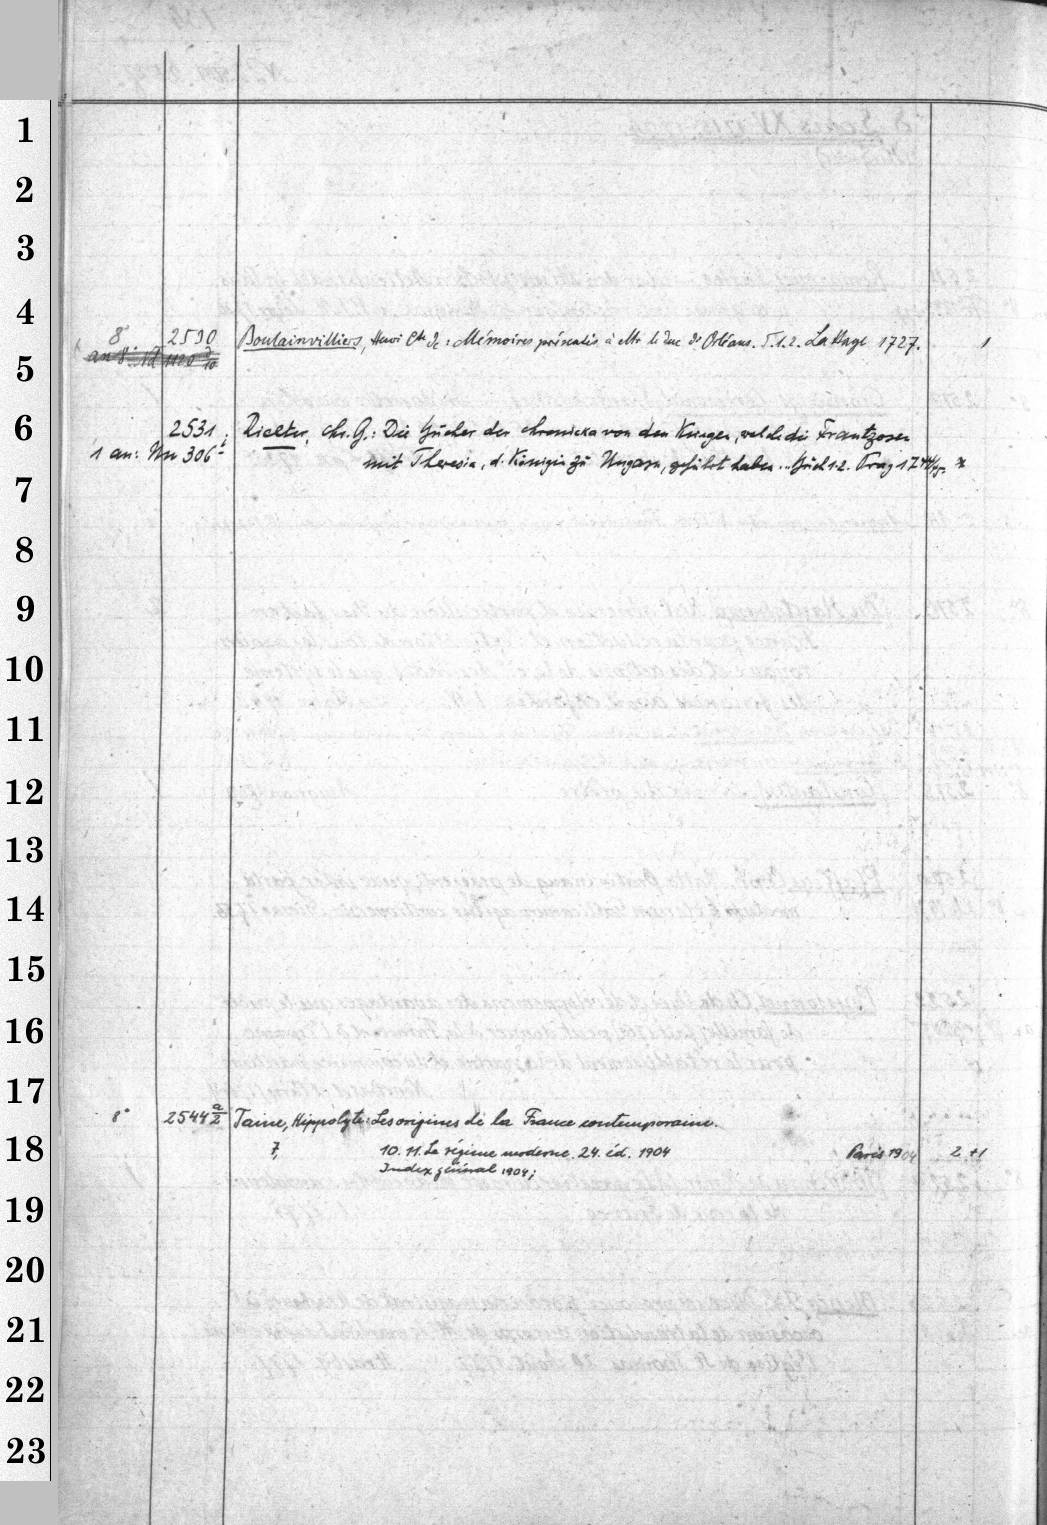 1
2
3
4
8° 2530 Boulainvilliers, Henri Cte de: Mémoires présentés à Mr le duc d'Orléans. T.1.2. La Haye 1727. 1
5
6
2531 Richter, Chr. G.: Die Bücher der Chronicka von den Kriegen, welche die Frantzosen
1 an: Nn 306 mit Theresia, d. Königin zu Ungarn, geführt haben .. Buch 1-2. Prag 1744/45.
7
8
9
10
11
12
13
14
15
16
17
8° 2544 a/2 Taine, Hippolyte: Les origines de la France contemporaine.
18
7, 10. 11. Le régime moderne. 24. éd. 1904 Paris 1904 2 +1
Index général 1904;
19
20
21
22
23